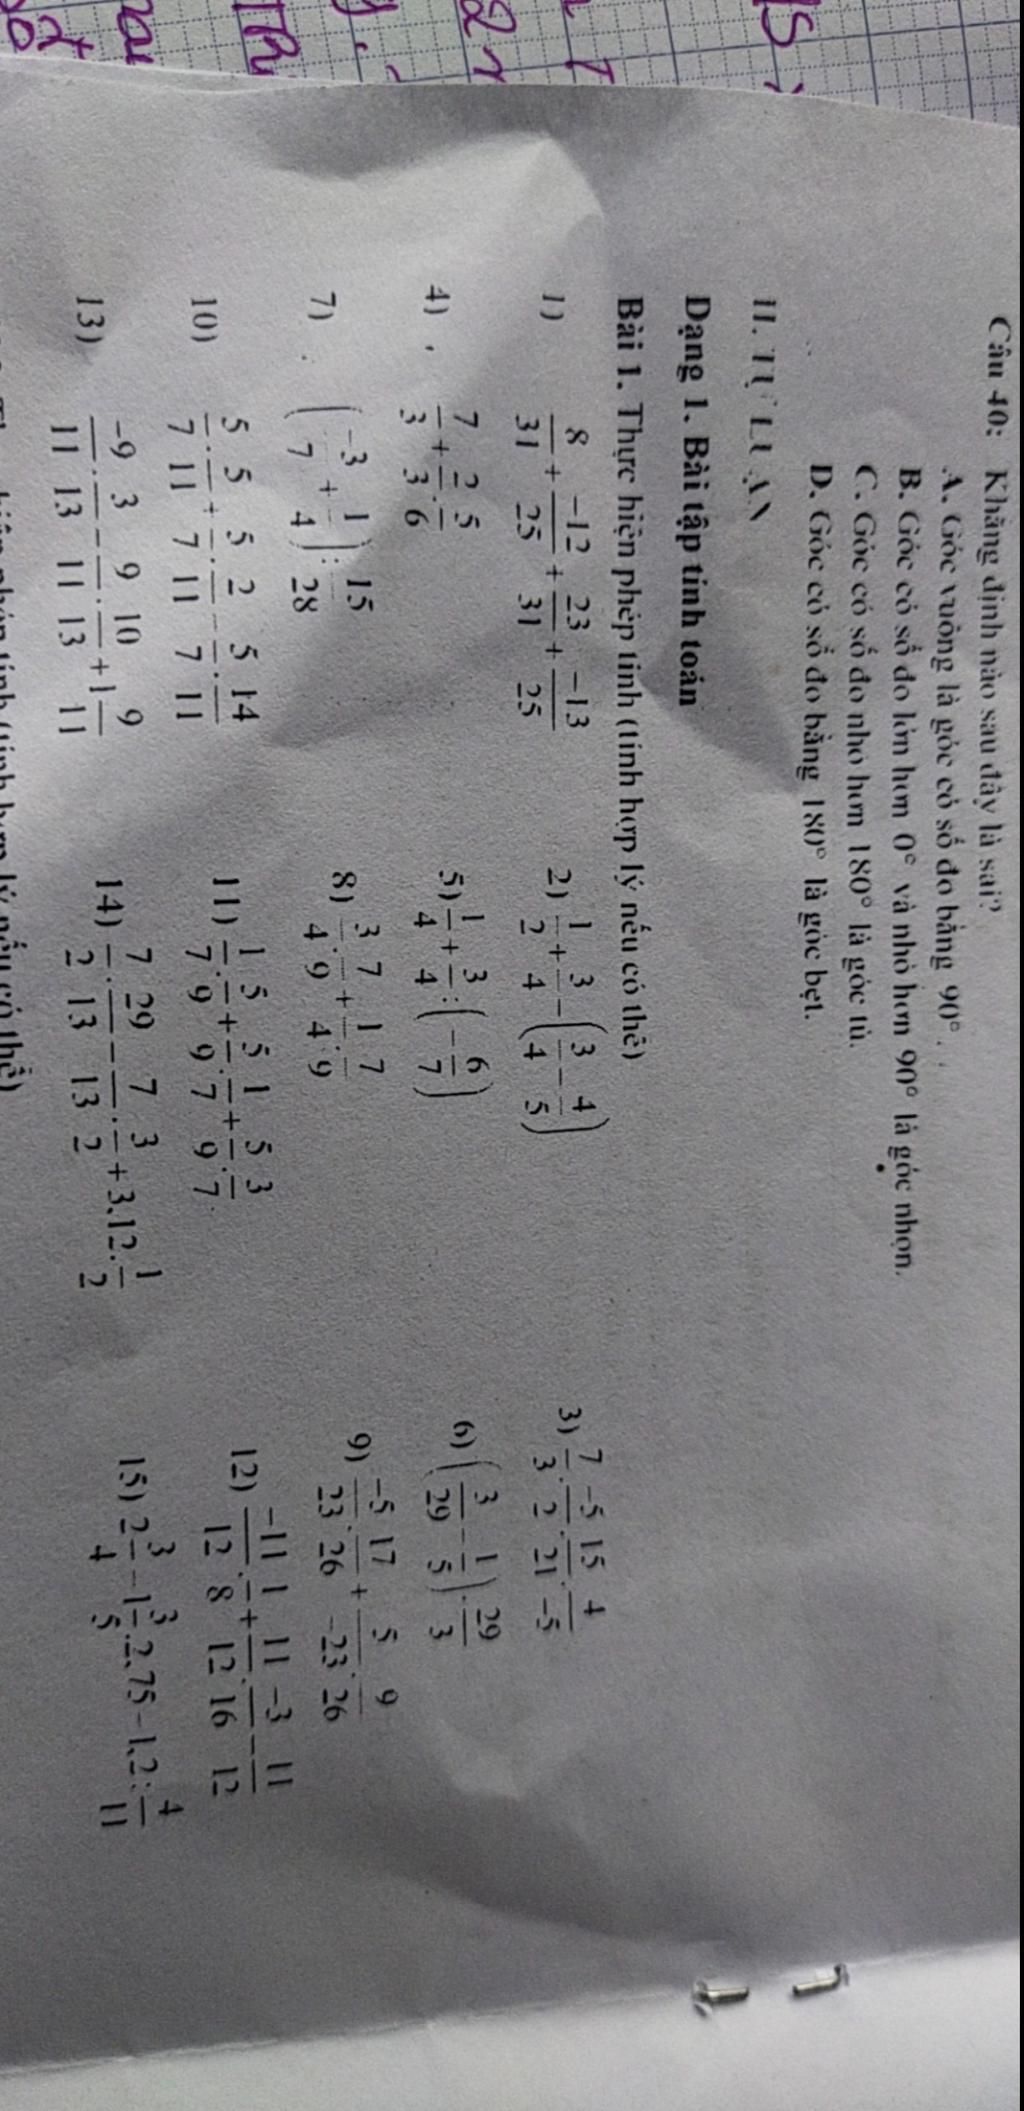 Câu 40: Khẳng định nào sau đây là sai?
A. Góc vuông là góc có số đo bằng 90°.
B. Góc có số đo lớn hơn 0° và nhỏ hơn 90° là góc nhọn.
C. Góc có số đo nhỏ hơn 180° là góc tù.
D. Góc có số đo bằng 180° là góc bẹt.
II. TỰ LUẬN
Dạng 1. Bài tập tính toán
Bài 1. Thực hiện phép tính (tính hợp lý nếu có thể)
1) 8/31 + -12/25 + 23/31 + -13/25 2) 1/2 + 3/4 - (3/4 - 4/5) 3) 7/3 . -5/2 . 15/21 . 4/-5
4) 7/3 + 2/3 . 5/6 5) 1/4 + 3/4 : (- 6/7) 6) (3/29 - 1/5) . 29/3
7) (-3/7 + 1/4) : 15/28 8) 3/4 . 7/9 + 1/4 . 7/9 9) -5/23 . 17/26 + 5/-23 . 9/26
10) 5/7 . 5/11 + 5/7 . 2/11 - 5/7 . 14/11 11) 1/7 . 5/9 + 5/9 . 1/7 + 5/9 . 3/7 12) -11/12 . 1/8 + 11/12 . -3/16 - 11/12
13) -9/11 . 3/13 - 9/11 . 10/13 + 1 9/11 14) 7/2 . 29/13 - 7/13 . 3/2 + 3,12 . 1/2 15) 2 3/4 - 1 3/5 . 2,75 - 1,2 : 4/11